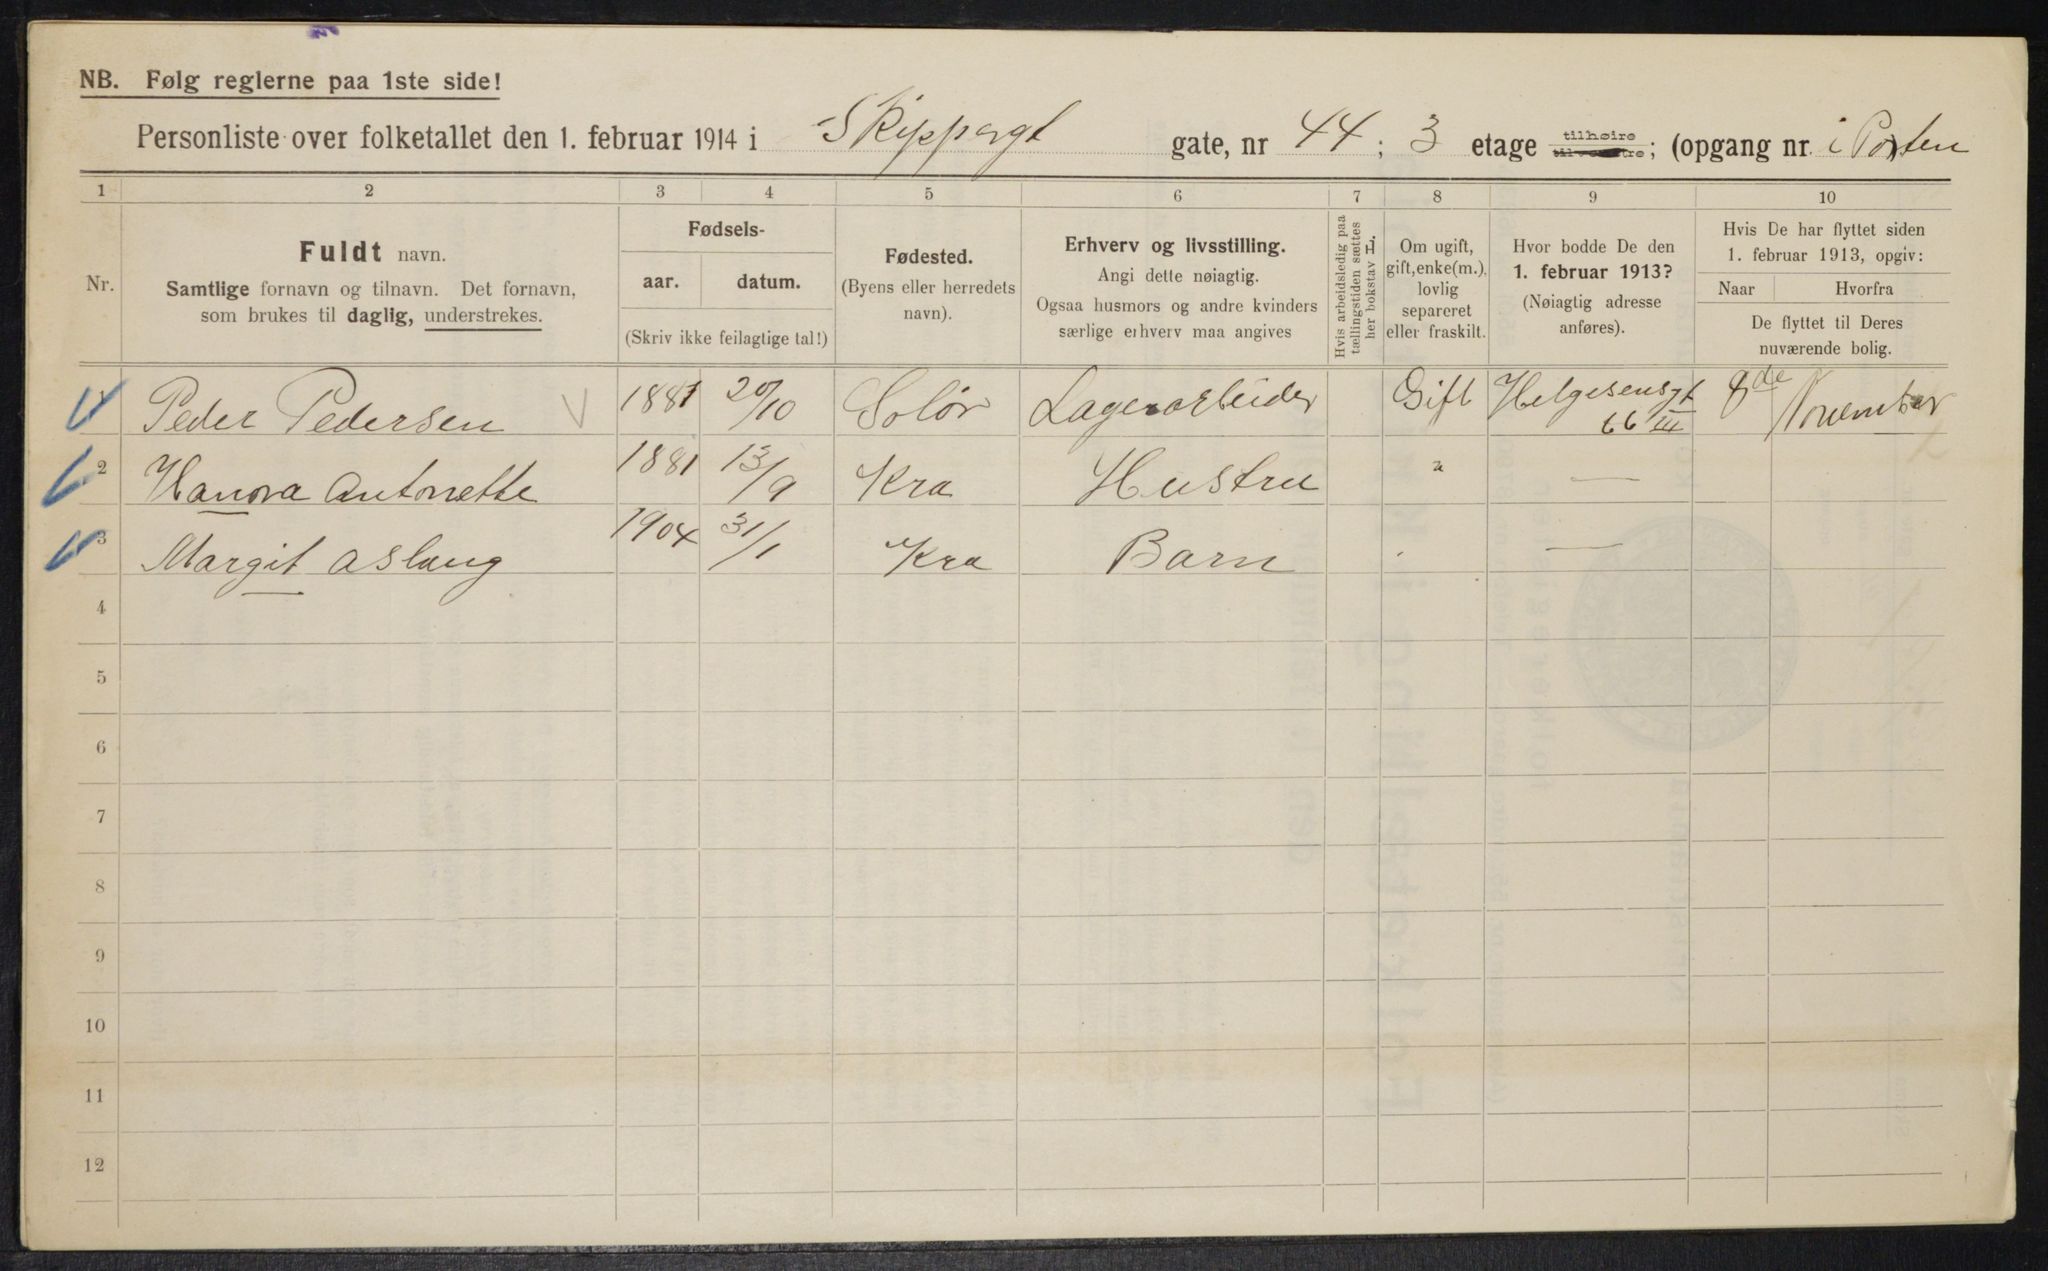 NB. Følg reglerne paa 1ste side!
Personliste over folketallet den 1. februar 1914 i Skippergt gate, nr 44; 3 etage tilhøire tilvenstre; (opgang nr. i Porten
1 2 3 4 5 6 7 8 9 10
Nr.
Fuldt navn.
Samtlige fornavn og tilnavn. Det fornavn,
som brukes til daglig, understrekes.
Fødsels-
aar. datum.
(Skriv ikke feilagtige tal!)
Fødested.
(Byens eller herredets
navn).
Erhverv og livsstilling.
Angi dette nøiagtig.
Ogsaa husmors og andre kvinders
særlige erhverv maa angives
Hvis arbeidsledig paa
tællingstiden sættes
her bokstav L.
Om ugift,
gift, enke(m.),
lovlig
separeret
eller fraskilt.
Hvor bodde De den
1. februar 1913?
(Nøiagtig adresse
anføres).
Hvis De har flyttet siden
1. februar 1913, opgiv:
Naar Hvorfra
De flyttet til Deres
nuværende bolig.
1 Peder Pedersen 1881 20/10 Solør Lagerarbeider Gift Helgesensgt 66 III 8de November
2 Hanna Antonette 1881 13/9 Kra Hustru " —
3 Margit Aslaug 1904 31/1 Kra Barn —
4
5
6
7
8
9
10
11
12